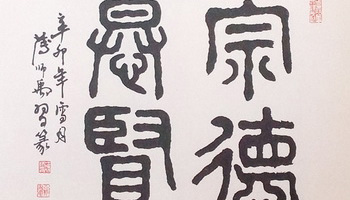 宗德
思賢
辛卯年雪月
習篆